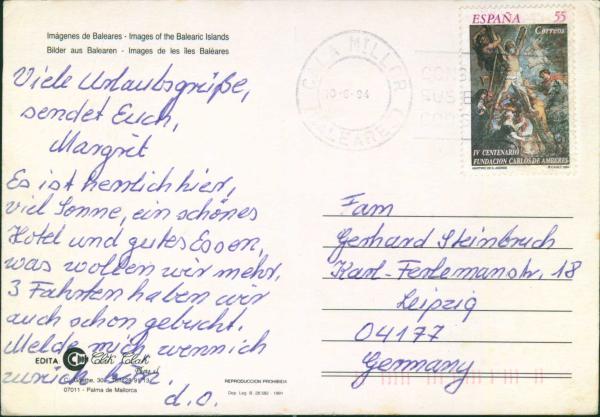 Imágenes de Baleares - Images of the Balearic Islands
Bilder aus Balearen - Images de les îles Baléares
Viele Urlaubsgrüße,
sendet Euch,
Margrit
Es ist herrlich hier,
viel Sonne, ein schönes
Hotel und gutes Essen,
was wollen wir mehr.
3 Fahrten haben wir
auch schon gebucht.
Melde mich wenn ich
zurück bin.
d.o.
EDITA
Clik Clak
07011 - Palma de Mallorca
REPRODUCCION PROHIBIDA
Dep. Leg. B.
CALA MILLOR
BALEARES
ESPAÑA 55
Correos
IV CENTENARIO
FUNDACION CARLOS DE AMBERES
Fam
Gerhard Steinbruch
Karl-Ferlemannstr, 18
Leipzig
04177
Germany